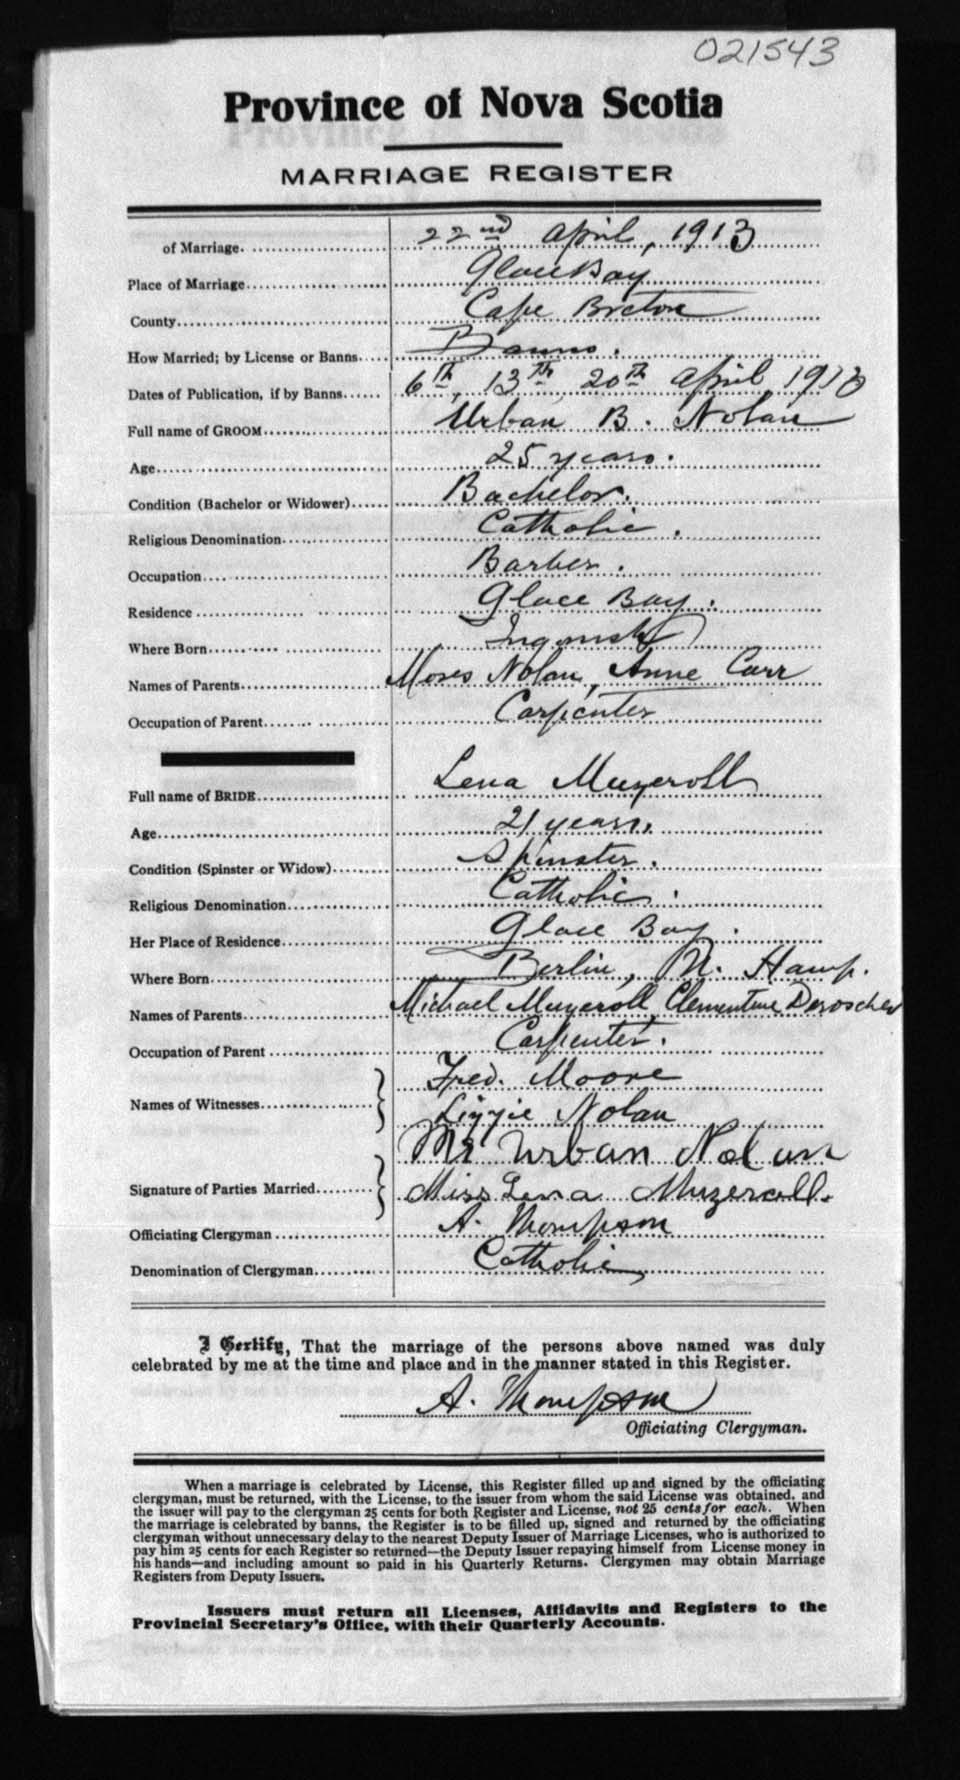 021543
Province of Nova Scotia
MARRIAGE REGISTER
of Marriage. 22nd April, 1913
Place of Marriage Glace Bay
County Cape Breton
How Married; by License or Banns Banns.
Dates of Publication, if by Banns 6th, 13th, 20th April 1913
Full name of GROOM Urban B. Nolan
Age 25 years.
Condition (Bachelor or Widower) Bachelor.
Religious Denomination Catholic.
Occupation Barber.
Residence Glace Bay.
Where Born
Names of Parents Moses Nolan, Anne Carr
Occupation of Parent Carpenter
Full name of BRIDE Lena Muzeroll
Age 21 years.
Condition (Spinster or Widow) Spinster.
Religious Denomination Catholic.
Her Place of Residence Glace Bay.
Where Born Berlin, N. Hamp.
Names of Parents Michael Muzeroll, Clementine
Occupation of Parent Carpenter.
Names of Witnesses Fred. Moore
Lizzie Nolan
Signature of Parties Married Mr Urban Nolan
Miss Lena Muzeroll.
Officiating Clergyman A. Thompson
Denomination of Clergyman Catholic
I Certify, That the marriage of the persons above named was duly
celebrated by me at the time and place and in the manner stated in this Register.
A. Thompson
Officiating Clergyman.
When a marriage is celebrated by License, this Register filled up and signed by the officiating
clergyman, must be returned, with the License, to the issuer from whom the said License was obtained, and
the issuer will pay to the clergyman 25 cents for both Register and License, not 25 cents for each. When
the marriage is celebrated by banns, the Register is to be filled up, signed and returned by the officiating
clergyman without unnecessary delay to the nearest Deputy Issuer of Marriage Licenses, who is authorized to
pay him 25 cents for each Register so returned—the Deputy Issuer repaying himself from License money in
his hands—and including amount so paid in his Quarterly Returns. Clergymen may obtain Marriage
Registers from Deputy Issuers.
Issuers must return all Licenses, Affidavits and Registers to the
Provincial Secretary's Office, with their Quarterly Accounts.